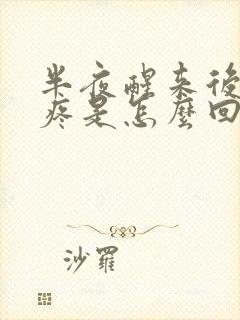 半夜醒来後
疼是怎麼回
沙羅